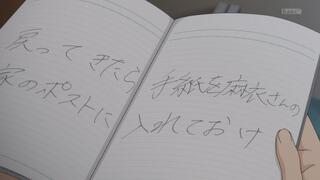 戻ってきたら
手紙を麻衣さんの
家のポストに
入れておけ